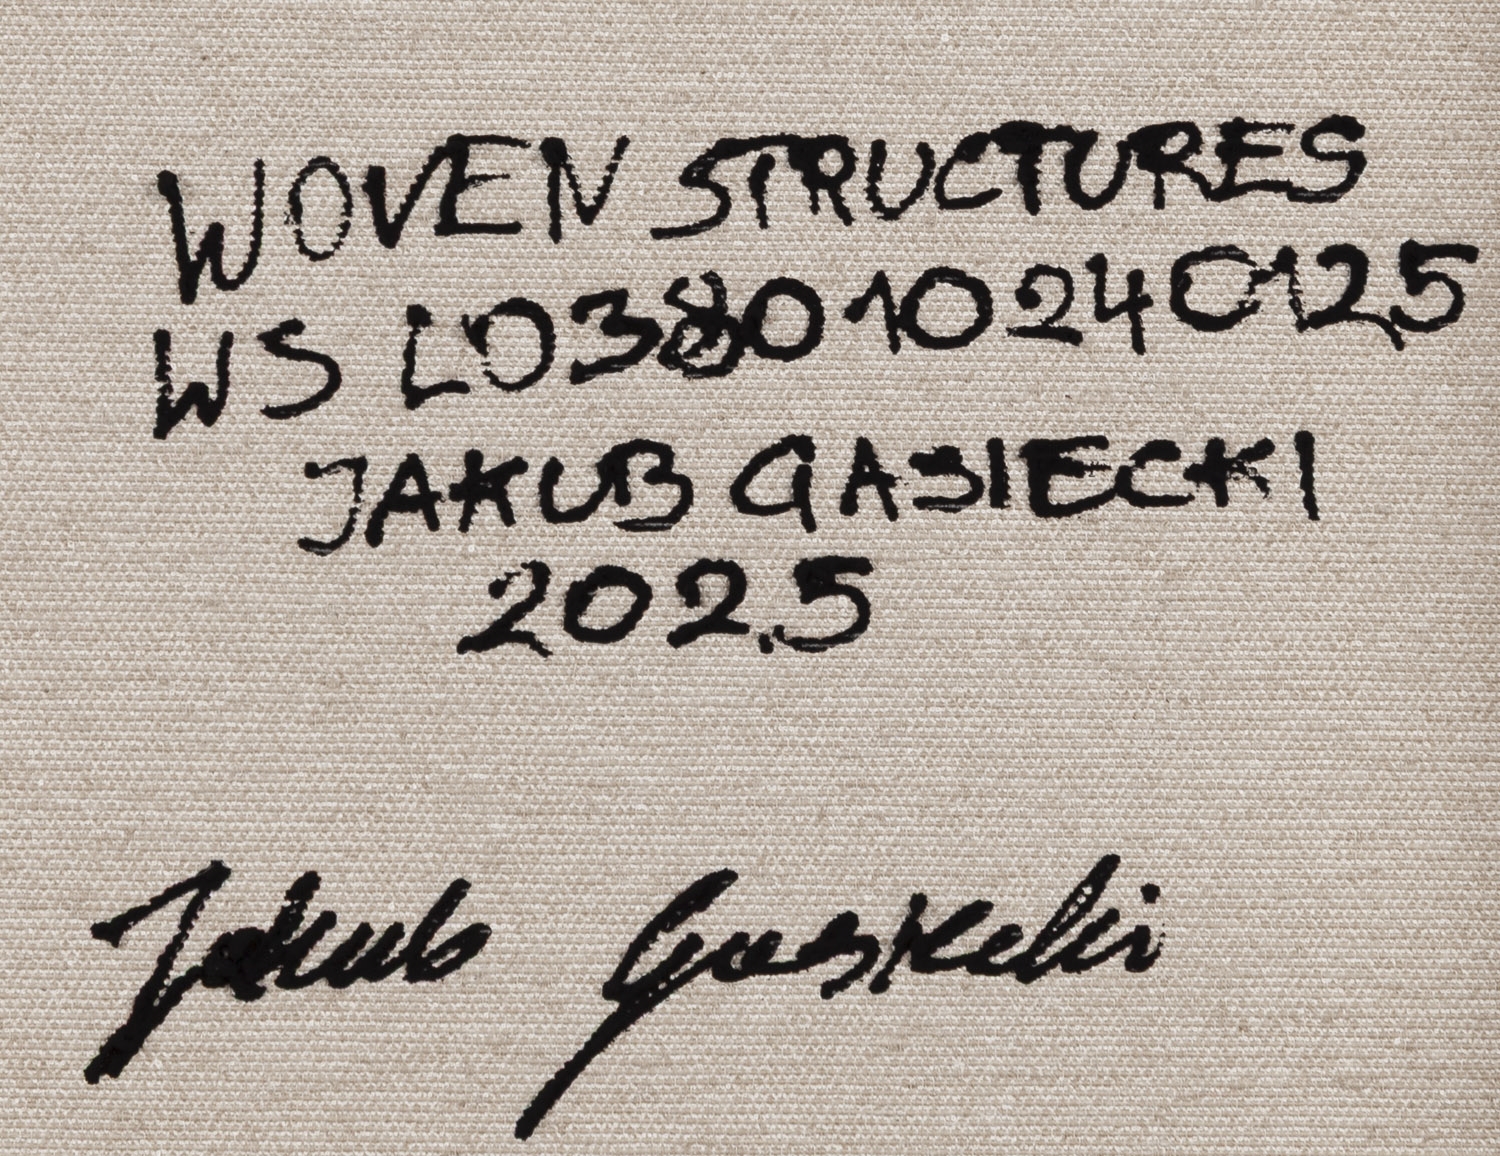 WOVEN STRUCTURES
WS L038010240125
JAKUB GASIECKI
2025
Jakub Gasiecki